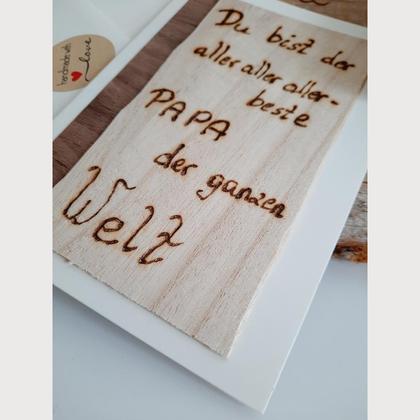 Du bist der
aller aller aller-
beste
PAPA
der ganzen
Welt
handmade with
love